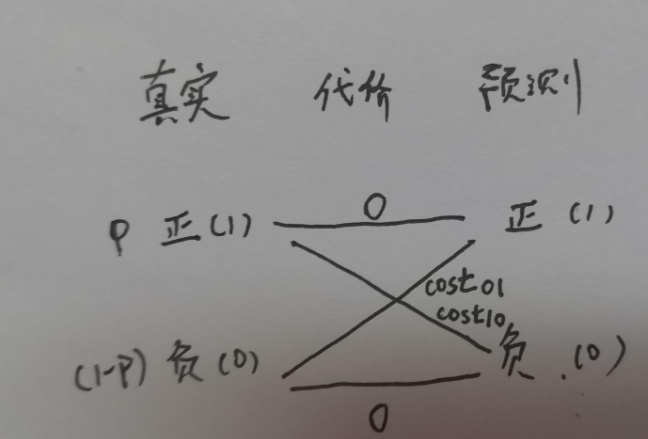 真实 代价 预测
0
P 正(1) 正(1)
cost01
cost10
(1-P) 负(0) 负(0)
0